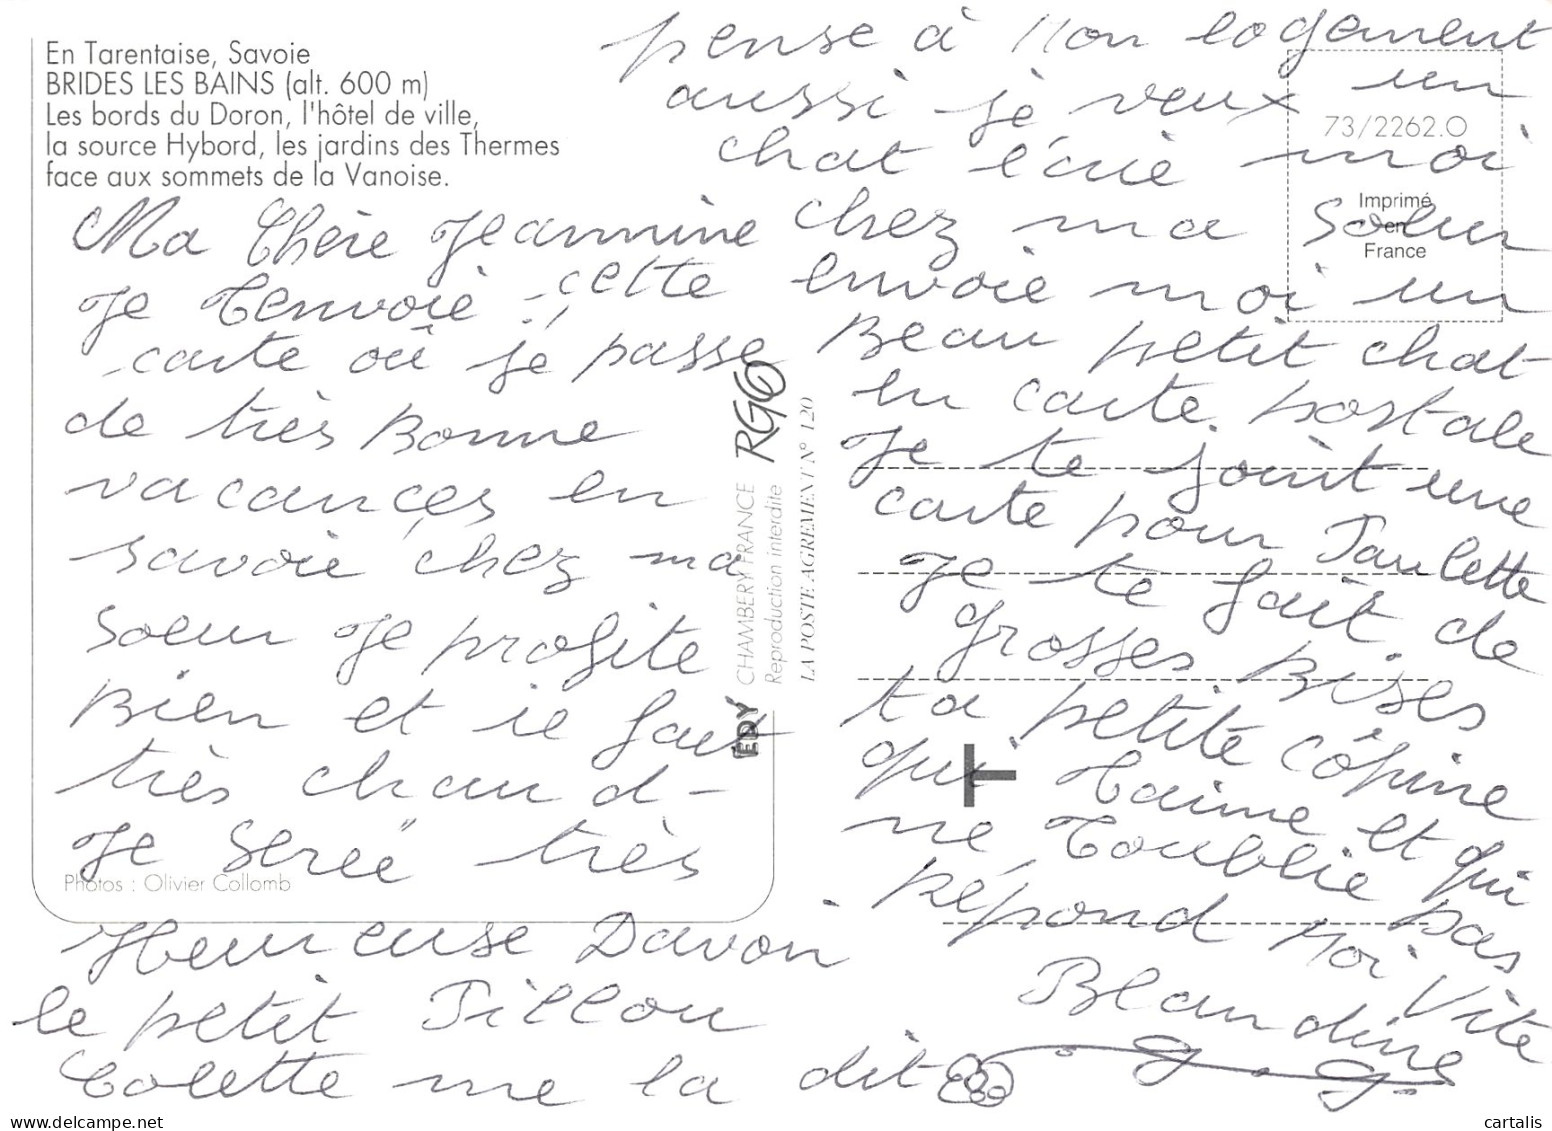 En Tarentaise, Savoie
BRIDES LES BAINS (alt. 600 m)
Les bords du Doron, l'hôtel de ville,
la source Hybord, les jardins des Thermes
face aux sommets de la Vanoise.
Ma Chère Jeannine
Je t'envoie cette
carte où je passe
de très Bonne
vacances en
savoie chez ma
soeur Je profite
Bien et ie fait
très chaud-
Je serée très
Photos : Olivier Collomb
Heureuse Davoir
le petit Pillou
Colette me la dit
pense à Mon logement
aussi je veux un
chat l'écrie moi
chez ma soeur
envoie moi un
Beau petit chat
en carte postale
Je te joint une
carte pour Paulette
Je te fait de
grosses Bises
ta petite cópine
qui t'aime et qui
ne t'oublie pas
répond Moi Vite
Blandine
73/2262.O
Imprimé
en
France
EDY
CHAMBERY FRANCE
RGO
Reproduction interdite
LA POSTE AGREMENT N° 120
T
cartalis
delcampe.net